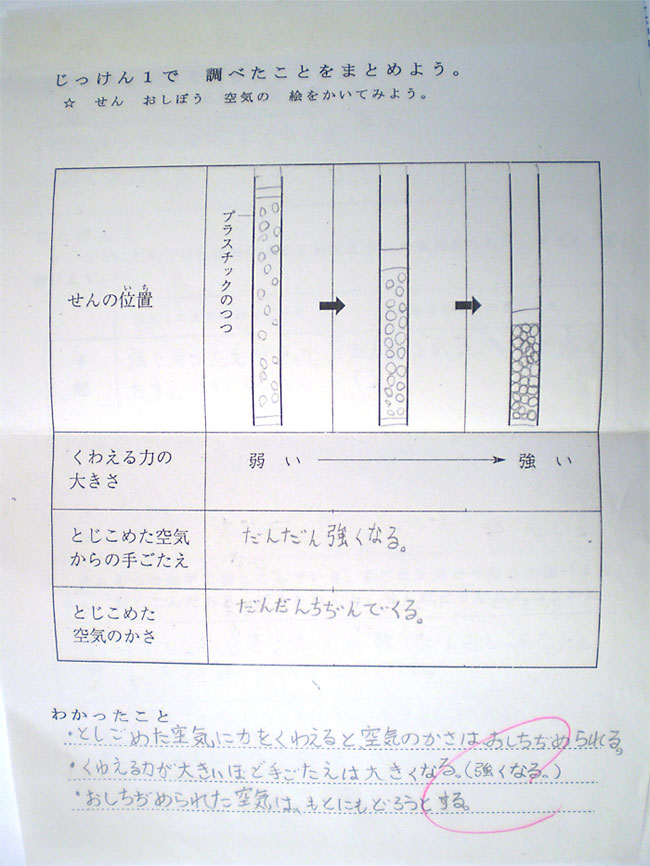 じっけん1で 調べたことをまとめよう。
☆ せん おしぼう 空気の 絵をかいてみよう。
プラスチックのつつ
せんの位置
いち
くわえる力の
大きさ
弱い
強い
とじこめた空気
からの手ごたえ
だんだん強くなる。
とじこめた
空気のかさ
だんだんちぢんでいくる。
わかったこと
・としごめた空気に力をくわえると空気のかさはおしちぢめられる。
・くゆえる力が大きいほど手ごたえは大きくなる。(強くなる。)
・おしちぢめられた空気は、もとにもどろうとする。